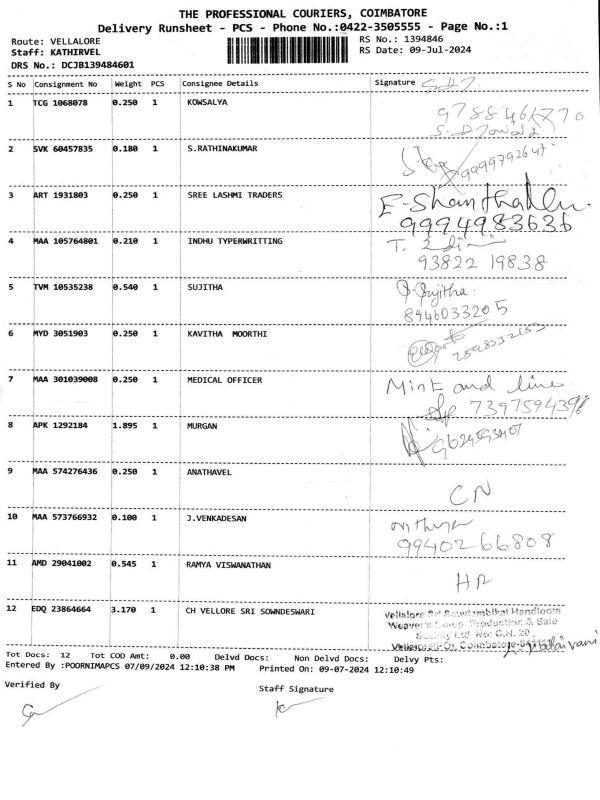 THE PROFESSIONAL COURIERS, COIMBATORE
Delivery Runsheet - PCS - Phone No.:0422-3505555 - Page No.:1
Route: VELLALORE
RS No.: 1394846
Staff: KATHIRVEL
RS Date: 09-Jul-2024
DRS No.: DCJB139484601
S No Consignment No Weight PCS Consignee Details Signature
1 TCG 1068078 0.250 1 KOWSALYA
2 SVK 60457835 0.180 1 S.RATHINAKUMAR
3 ART 1931803 0.250 1 SREE LASHMI TRADERS
9994983636
4 MAA 105764801 0.210 1 INDHU TYPERWRITTING
93822 19838
5 TVM 10535238 0.540 1 SUJITHA
Sujitha
8946033205
6 MYD 3051903 0.250 1 KAVITHA MOORTHI
7 MAA 301039008 0.250 1 MEDICAL OFFICER
Mint and line
8 APK 1292184 1.895 1 MURGAN
9 MAA 574276436 0.250 1 ANATHAVEL
CN
10 MAA 573766932 0.100 1 J.VENKADESAN
9940266808
11 AMD 29041002 0.545 1 RAMYA VISWANATHAN
HR
12 EDQ 23864664 3.170 1 CH VELLORE SRI SOWNDESWARI
Weaver's Co-op. Production & Sale
Society Ltd. No: C.H. 20,
Tot Docs: 12 Tot COD Amt: 0.00 Delvd Docs: Non Delvd Docs: Delvy Pts:
Entered By :POORNIMAPCS 07/09/2024 12:10:38 PM Printed On: 09-07-2024 12:10:49
Verified By
Staff Signature